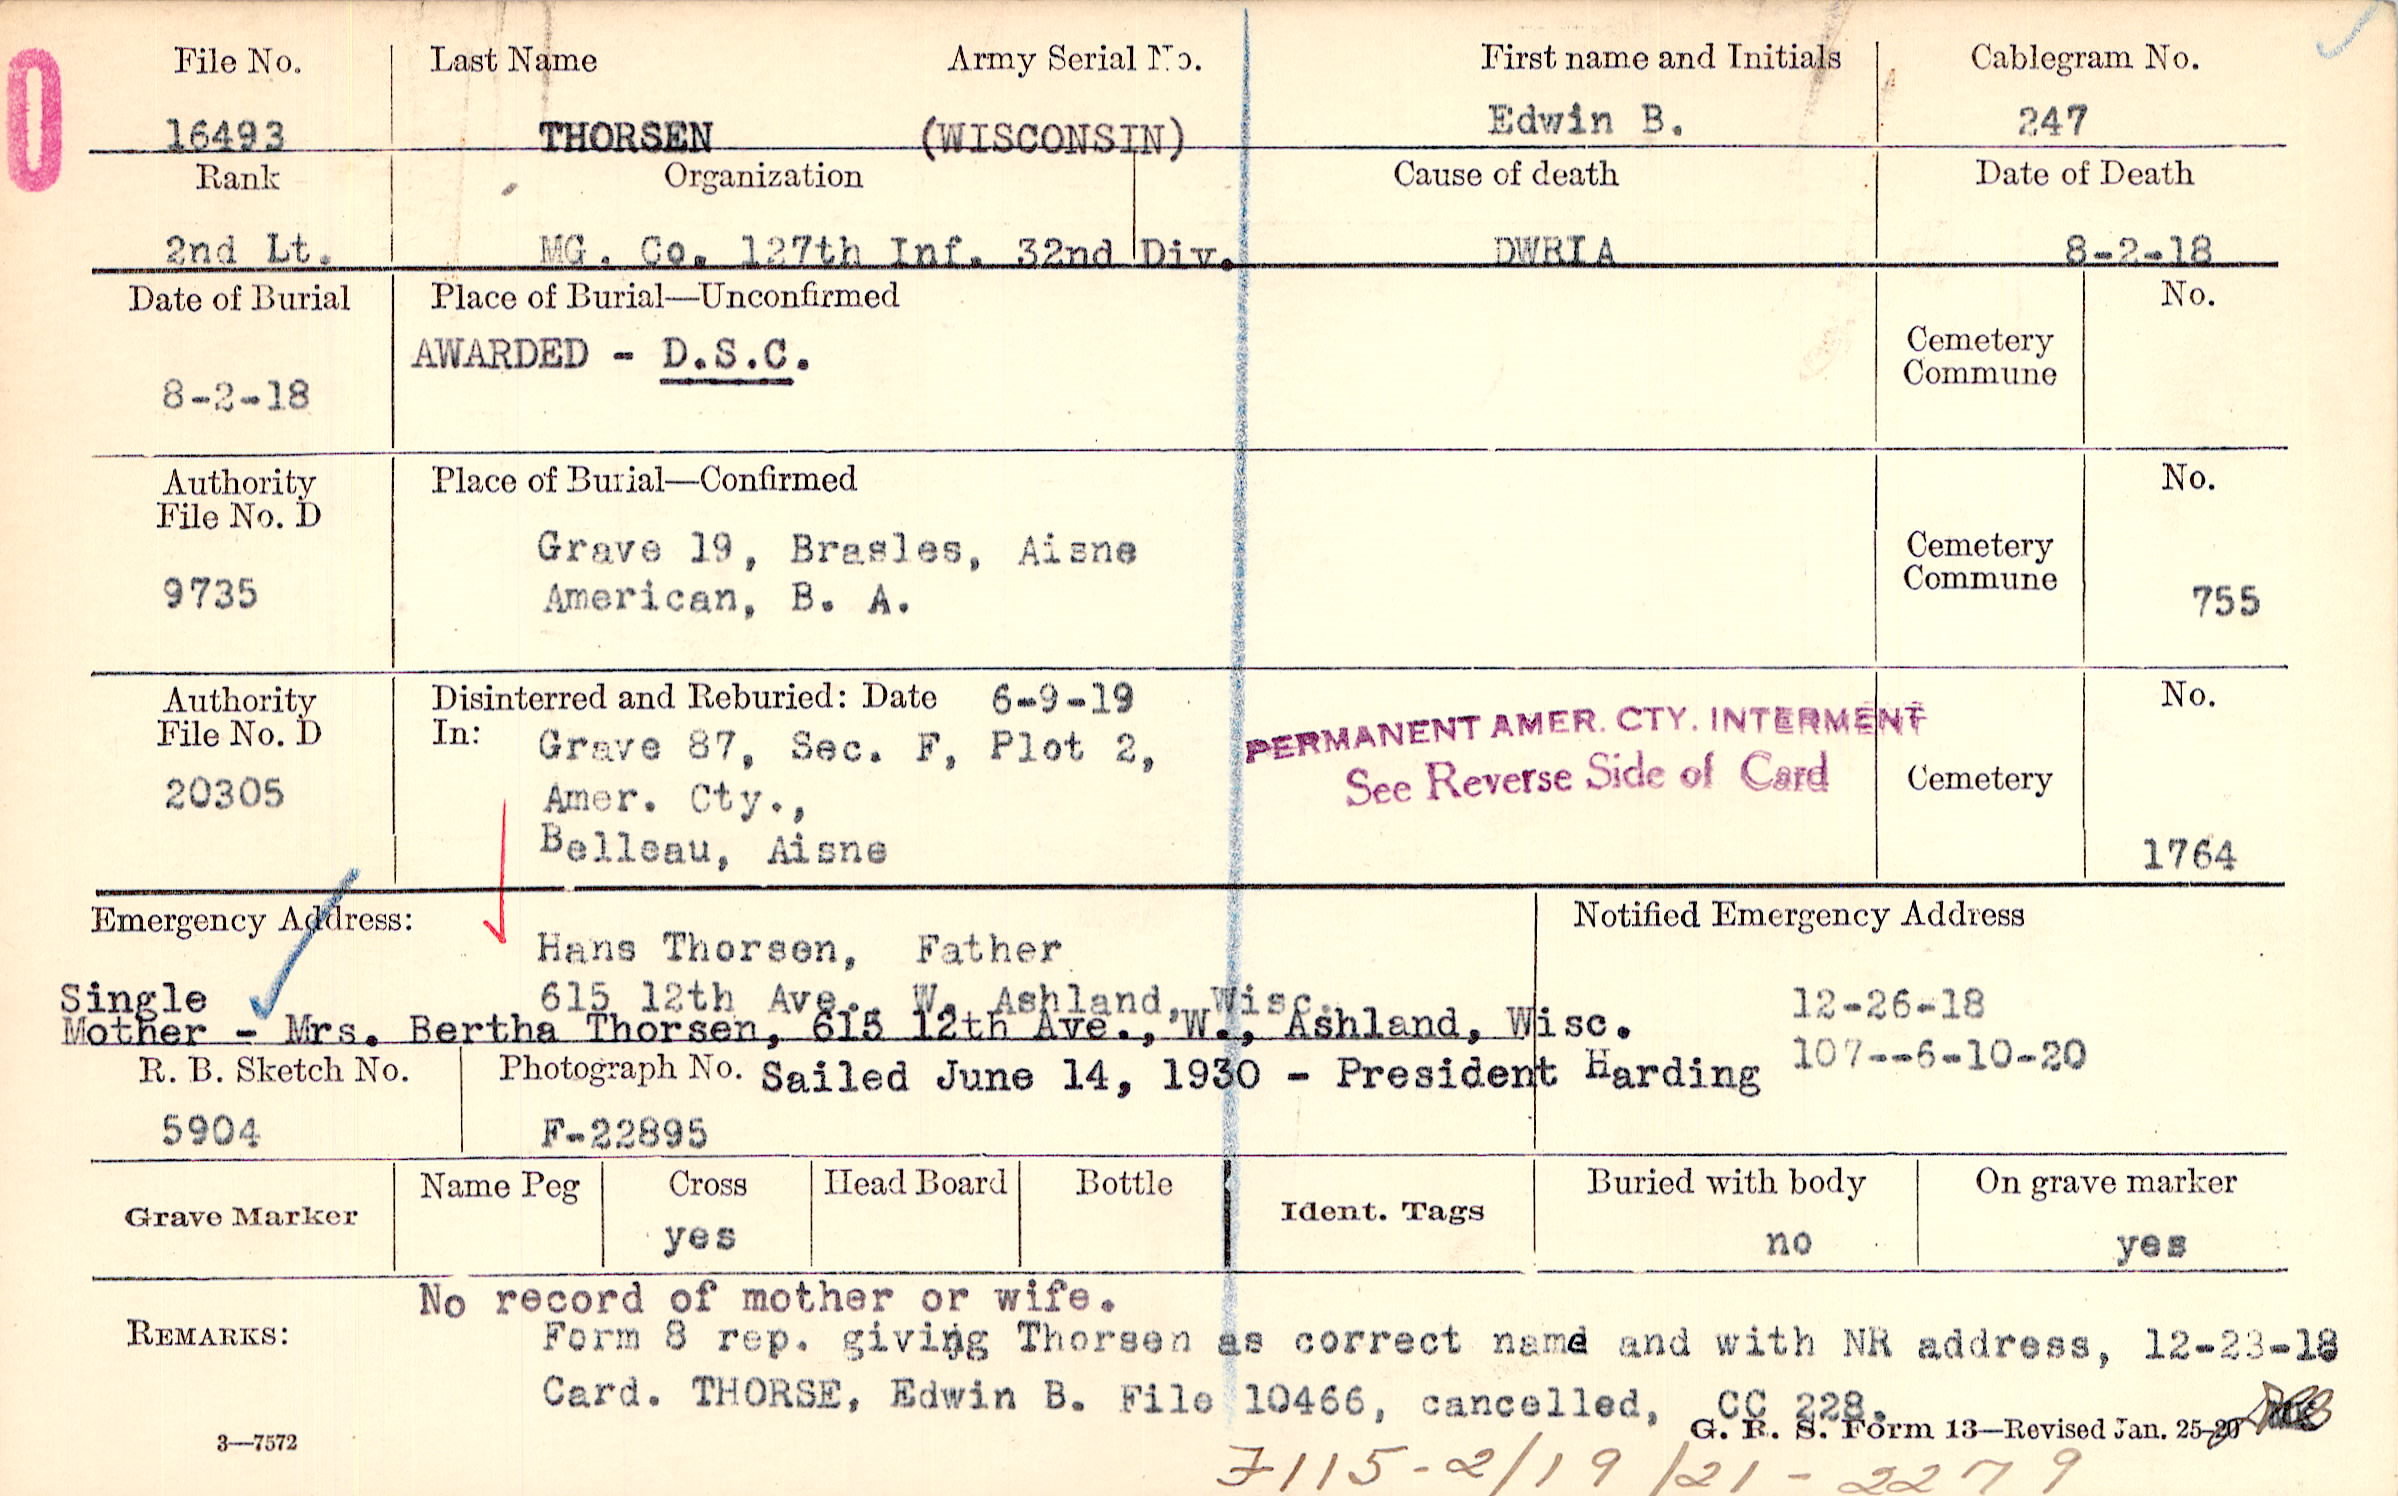 File No. Last Name Army Serial No. First name and Initials Cablegram No.
16493 THORSEN (WISCONSIN) Edwin B. 247
Rank Organization Cause of death Date of Death
2nd Lt. MG. Co. 127th Inf. 32nd Div. DWRIA 8-2-18
Date of Burial Place of Burial—Unconfirmed No.
AWARDED - D.S.C. Cemetery
Commune
8-2-18
Authority Place of Burial—Confirmed No.
File No. D
Grave 19, Brasles, Aisne Cemetery
9735 American, B. A. Commune 755
Authority Disinterred and Reburied: Date 6-9-19 No.
File No. D In: Grave 87, Sec. F, Plot 2, PERMANENT AMER. CTY. INTERMENT
20305 Amer. Cty., See Reverse Side of Card Cemetery
Belleau, Aisne 1764
Emergency Address: Notified Emergency Address
Hans Thorsen, Father
Single 615 12th Ave. W. Ashland, Wisc. 12-26-18
Mother - Mrs. Bertha Thorsen, 615 12th Ave., W., Ashland, Wisc.
107--6-10-20
R. B. Sketch No. Photograph No. Sailed June 14, 1930 - President Harding
5904 F-22895
Grave Marker Name Peg Cross Head Board Bottle Ident. Tags Buried with body On grave marker
yes no yes
No record of mother or wife.
REMARKS: Form 8 rep. giving Thorsen as correct name and with NR address, 12-23-18
Card. THORSE, Edwin B. File 10466, cancelled, CC 228.
3—7572 G. R. S. Form 13—Revised Jan. 25-20
7115-2/19/21-2279